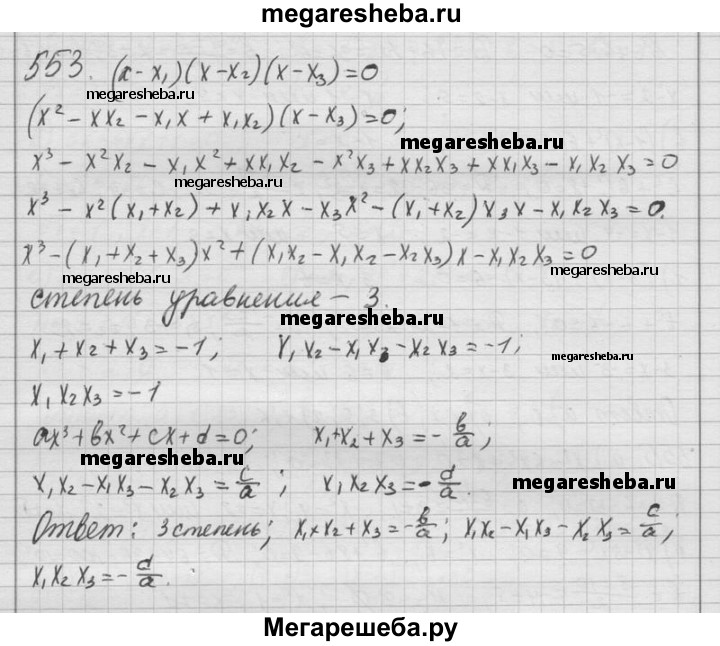 megaresheba.ru
553. (x-x₁)(x-x₂)(x-x₃)=0
megaresheba.ru
(x²-xx₂-x₁x+x₁x₂)(x-x₃)=0;
megaresheba.ru
x³-x²x₂-x₁x²+xx₁x₂-x²x₃+xx₂x₃+xx₁x₃-x₁x₂x₃=0
megaresheba.ru
x³-x²(x₁+x₂)+x₁x₂x-x₃x²-(x₁+x₂)x₃x-x₁x₂x₃=0.
x³-(x₁+x₂+x₃)x²+(x₁x₂-x₁x₂-x₂x₃)x-x₁x₂x₃=0
megaresheba.ru megaresheba.ru
степень уравнения - 3.
megaresheba.ru
x₁+x₂+x₃=-1; x₁x₂-x₁x₃-x₂x₃=-1;
megaresheba.ru
x₁x₂x₃=-1
ax³+bx²+cx+d=0; x₁+x₂+x₃=-b/a;
megaresheba.ru
x₁x₂-x₁x₃-x₂x₃=c/a; x₁x₂x₃=-d/a.
megaresheba.ru
Ответ: 3 степень; x₁+x₂+x₃=-b/a; x₁x₂-x₁x₃-x₂x₃=c/a;
x₁x₂x₃=-d/a.
megaresheba.ru
Мегарешеба.ру